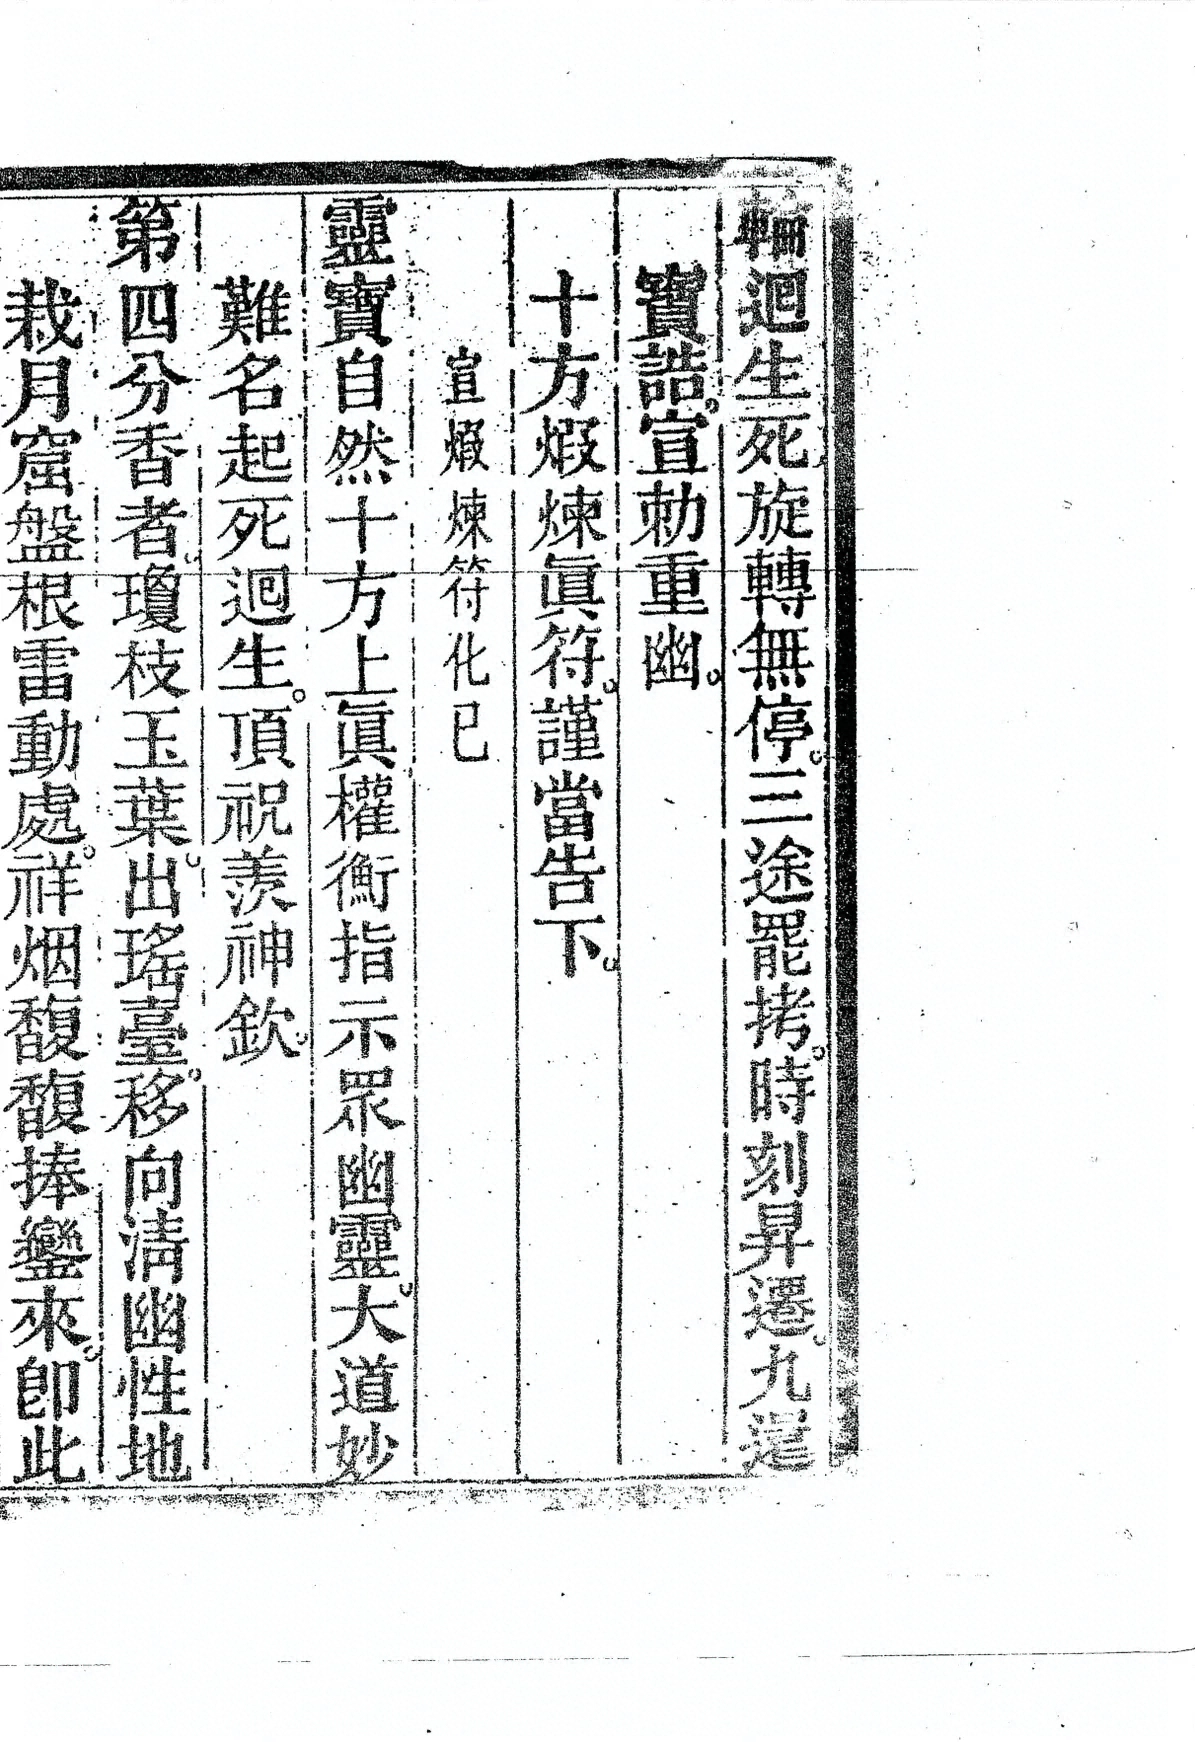 輪迴生死旋轉無停。三途罷拷。時刻昇遷。九還
寶誥。宣勅重幽。
十方煆煉眞符。謹當告下。
宣煆煉符化已
靈寶自然十方上眞權衡指示眾幽靈。大道妙
難名起死迴生。頂祝羨神欽。
第四分香者。瓊枝玉葉。出瑤臺。移向淸幽性地
栽月窟盤根雷動處。祥烟馥馥捧鑾來。卽此